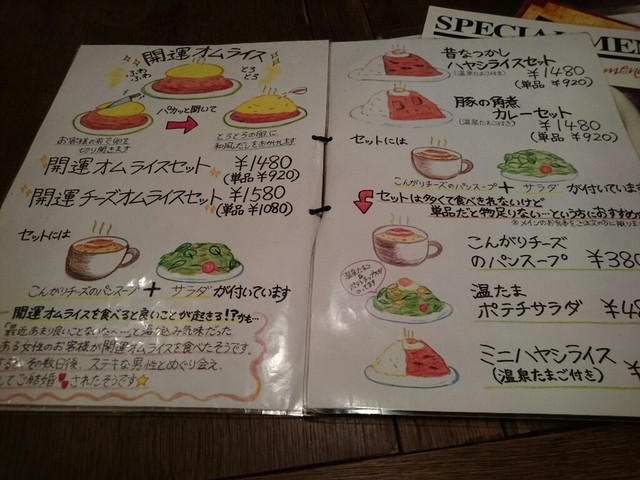 開運オムライス
ふわ
ふわ
とろ
とろ
パカッと開いて
お客様の前で卵を
切り開きます
とろとろの卵に
和風だしをおかけします
開運オムライスセット ¥1480
(単品 ¥920)
開運チーズオムライスセット ¥1580
(単品 ¥1080)
セットには
こんがりチーズのパンスープ + サラダ が付いています
開運オムライスを食べると良いことが起きる!?かも…
「最近あまり良いことないな〜…」と落ち込み気味だった
ある女性のお客様が開運オムライスを食べたそうです。
その数日後、ステキな男性とめぐり会え、
ご結婚されたそうです
SPECIAL MEN
menu
昔なつかし
ハヤシライスセット
(温泉たまご付き) ¥1480
(単品 ¥920)
豚の角煮
カレーセット
(温泉たまご付き) ¥1480
(単品 ¥920)
セットには
こんがりチーズのパンスープ + サラダ が付いています
セットは多くて食べきれないけど
単品だと物足りない…という方におすすめ
※メインのお食事をご注文の方に限ります
こんがりチーズ
のパンスープ ¥380
温泉たまご
のってます
温たま
ポテチサラダ ¥48
ミニハヤシライス
(温泉たまご付き) ¥